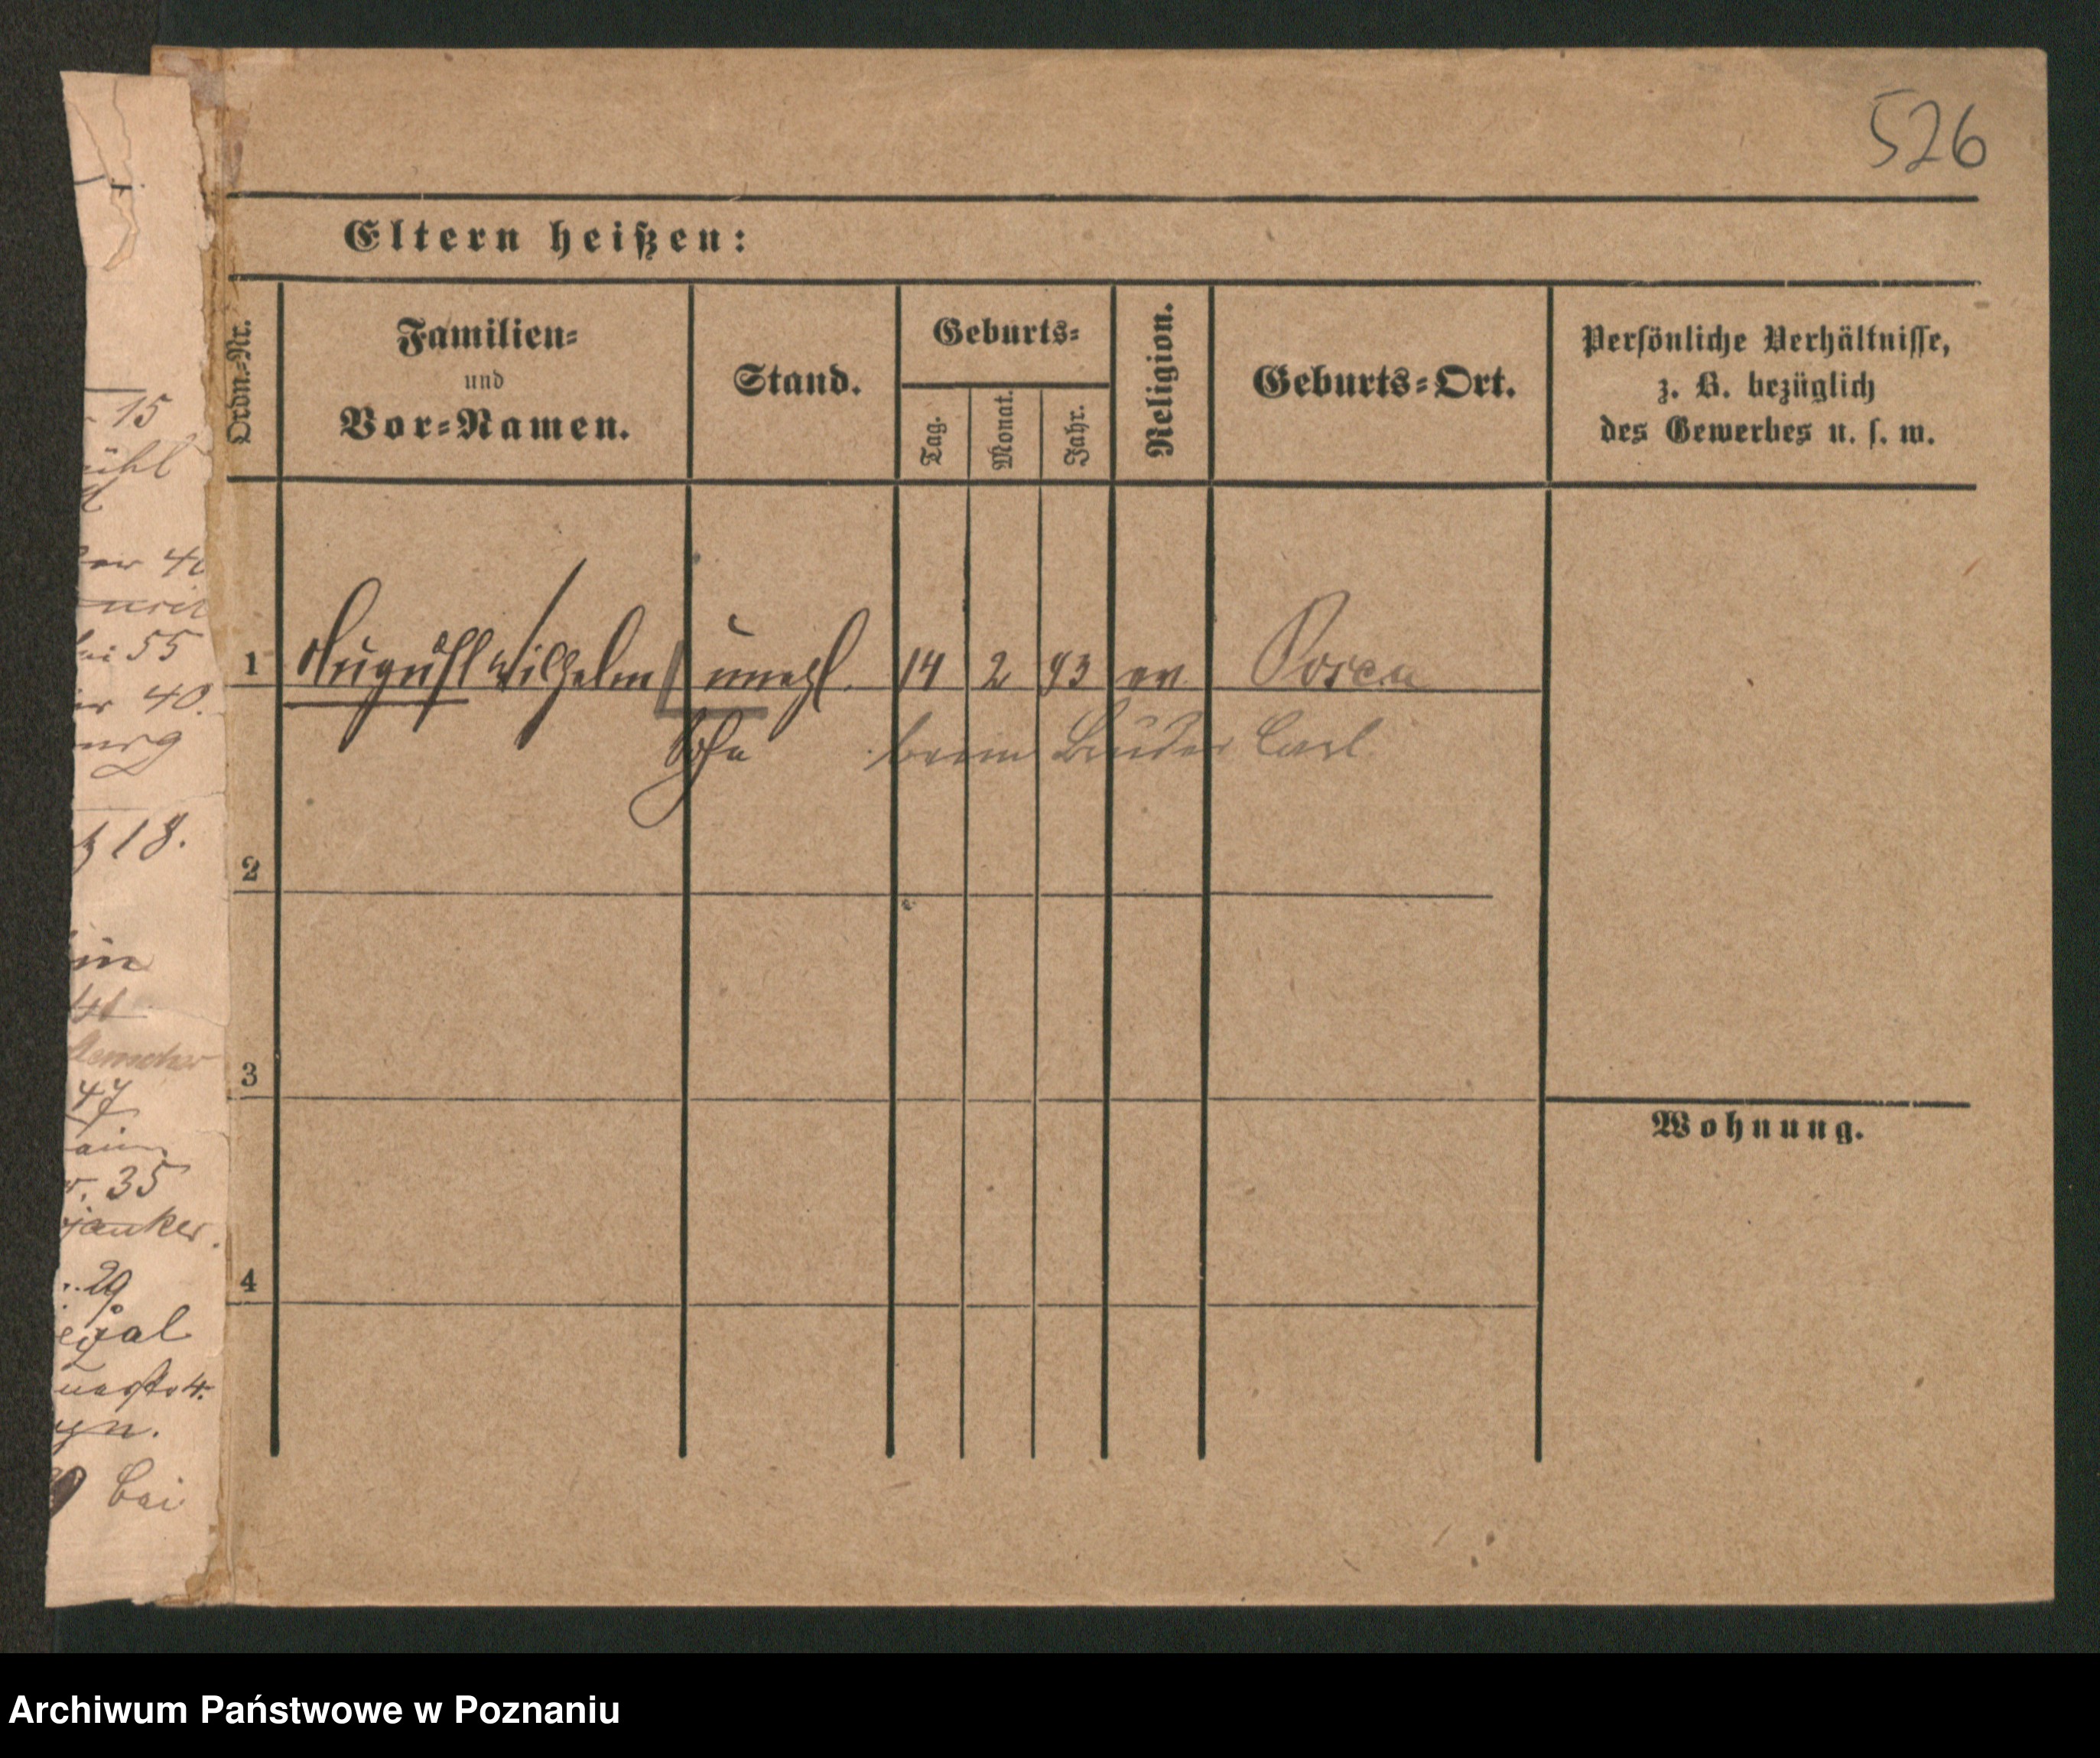 526
Eltern heißen:
Ordn.-Nr.
Familien-
und
Vor-Namen.
Stand.
Geburts-
Tag.
Monat.
Jahr.
Religion.
Geburts-Ort.
Persönliche Verhältnisse,
z. B. bezüglich
des Gewerbes u. s. w.
1 August Wilhelm unehl. 14 2 93 ev Posen
Sohn beim Bruder Carl
2
3
4
Wohnung.
15
ühl
55
40.
18.
47
35
janker.
29
4.
bei
Archiwum Państwowe w Poznaniu